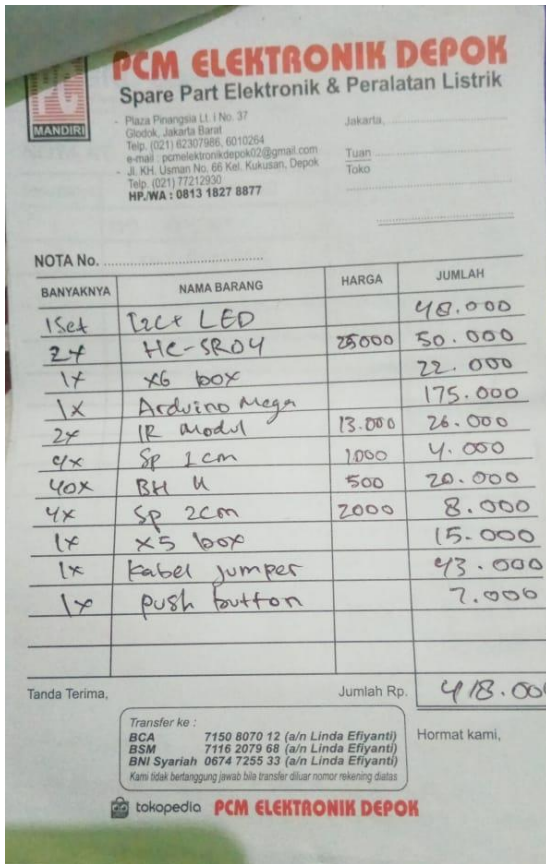 PCM ELEKTRONIK DEPOK
Spare Part Elektronik & Peralatan Listrik
MANDIRI
- Plaza Pinangsia Lt. I No. 37
Glodok, Jakarta Barat
Telp. (021) 62307986, 6010264
e-mail : pcmelektronikdepok02@gmail.com
- Jl. KH. Usman No. 66 Kel. Kukusan, Depok
Telp. (021) 77212930
HP./WA : 0813 1827 8877
Jakarta,
Tuan
Toko
NOTA No.
BANYAKNYA NAMA BARANG HARGA JUMLAH
1Set I2C+ LED 48.000
2x HC-SR04 25000 50.000
1x x6 box 22.000
1x Arduino Mega 175.000
2x IR Modul 13.000 26.000
4x Sp 1cm 1.000 4.000
40x BH 500 20.000
4x Sp 2cm 2000 8.000
1x x5 box 15.000
1x Kabel jumper 43.000
1x push button 7.000
Tanda Terima, Jumlah Rp. 418.00
Transfer ke :
BCA 7150 8070 12 (a/n Linda Efiyanti)
BSM 7116 2079 68 (a/n Linda Efiyanti)
BNI Syariah 0674 7255 33 (a/n Linda Efiyanti)
Kami tidak bertanggung jawab bila transfer diluar nomor rekening diatas
Hormat kami,
tokopedia PCM ELEKTRONIK DEPOK